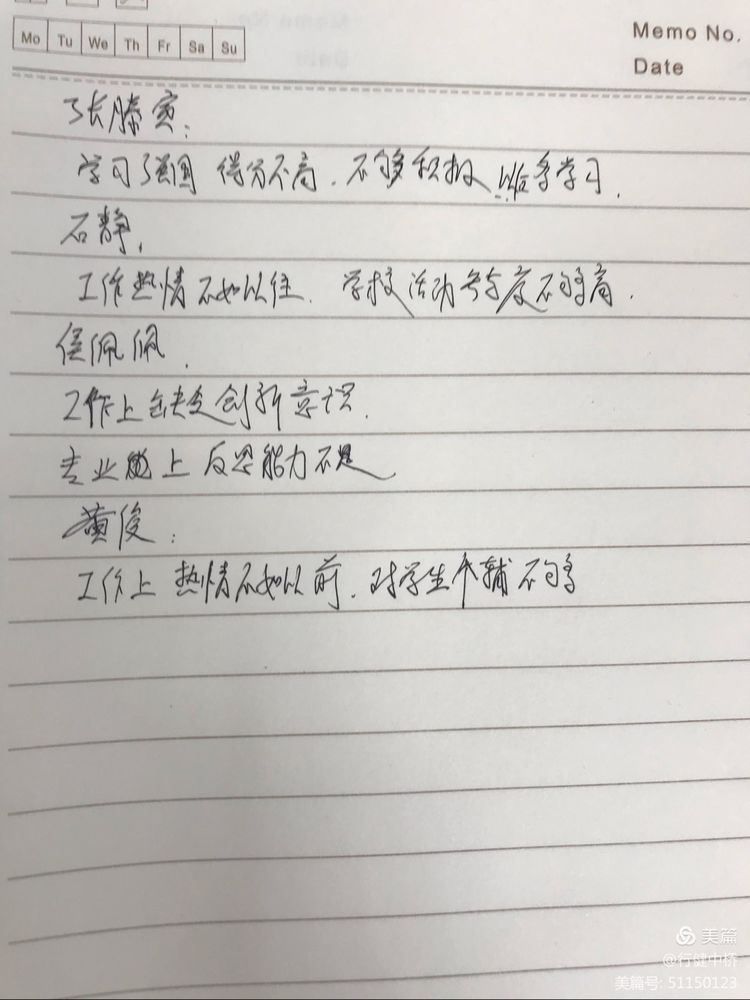 Mo Tu We Th Fr Sa Su
Memo No.
Date
张滕寅:
学习强国得分不高.不够积极, 多学习.
石静,
工作热情不如以往.学校活动参与度不够高.
侯佩佩.
工作上缺乏创新意识.
专业能上反思能力不足
黄俊:
工作上热情不如以前.对学生个辅不够
美篇
@行健中桥
美篇号: 51150123